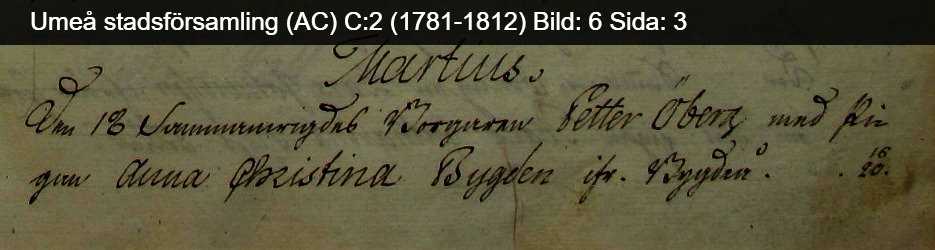 Umeå stadsförsamling (AC) C:2 (1781-1812) Bild: 6 Sida: 3
Martius.
Den 18 Sammanwigdes Borgaren Petter Öberg med Pi
gan Anna Christina Bygden ifr. Bygdeå. 16
20.